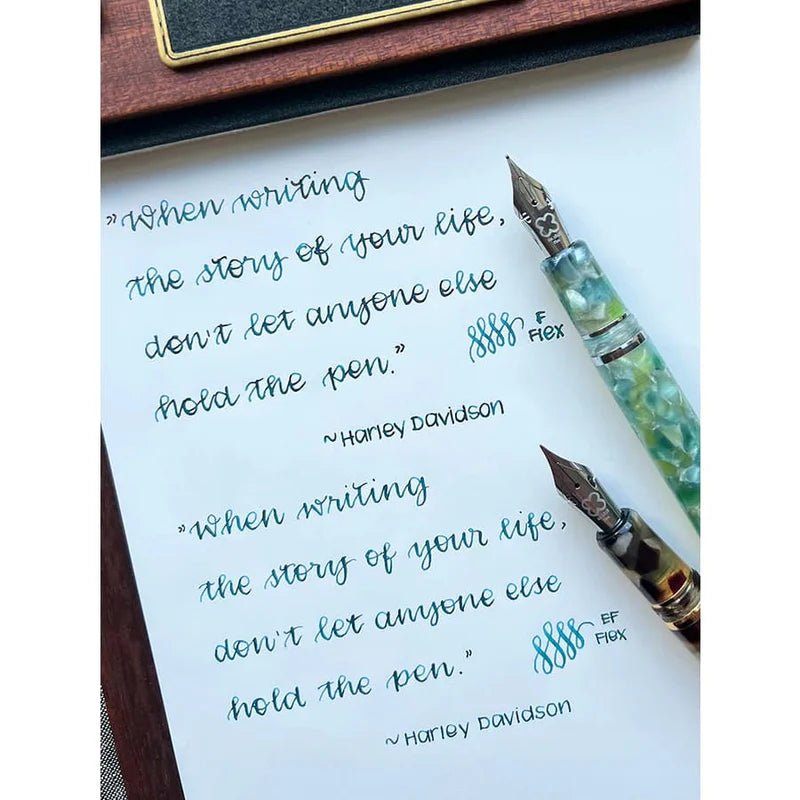 "When writing
the story of your life,
don't let anyone else
hold the pen."
F
Flex
~Harley Davidson
"When writing
the story of your life,
don't let anyone else
hold the pen."
EF
Flex
~Harley Davidson